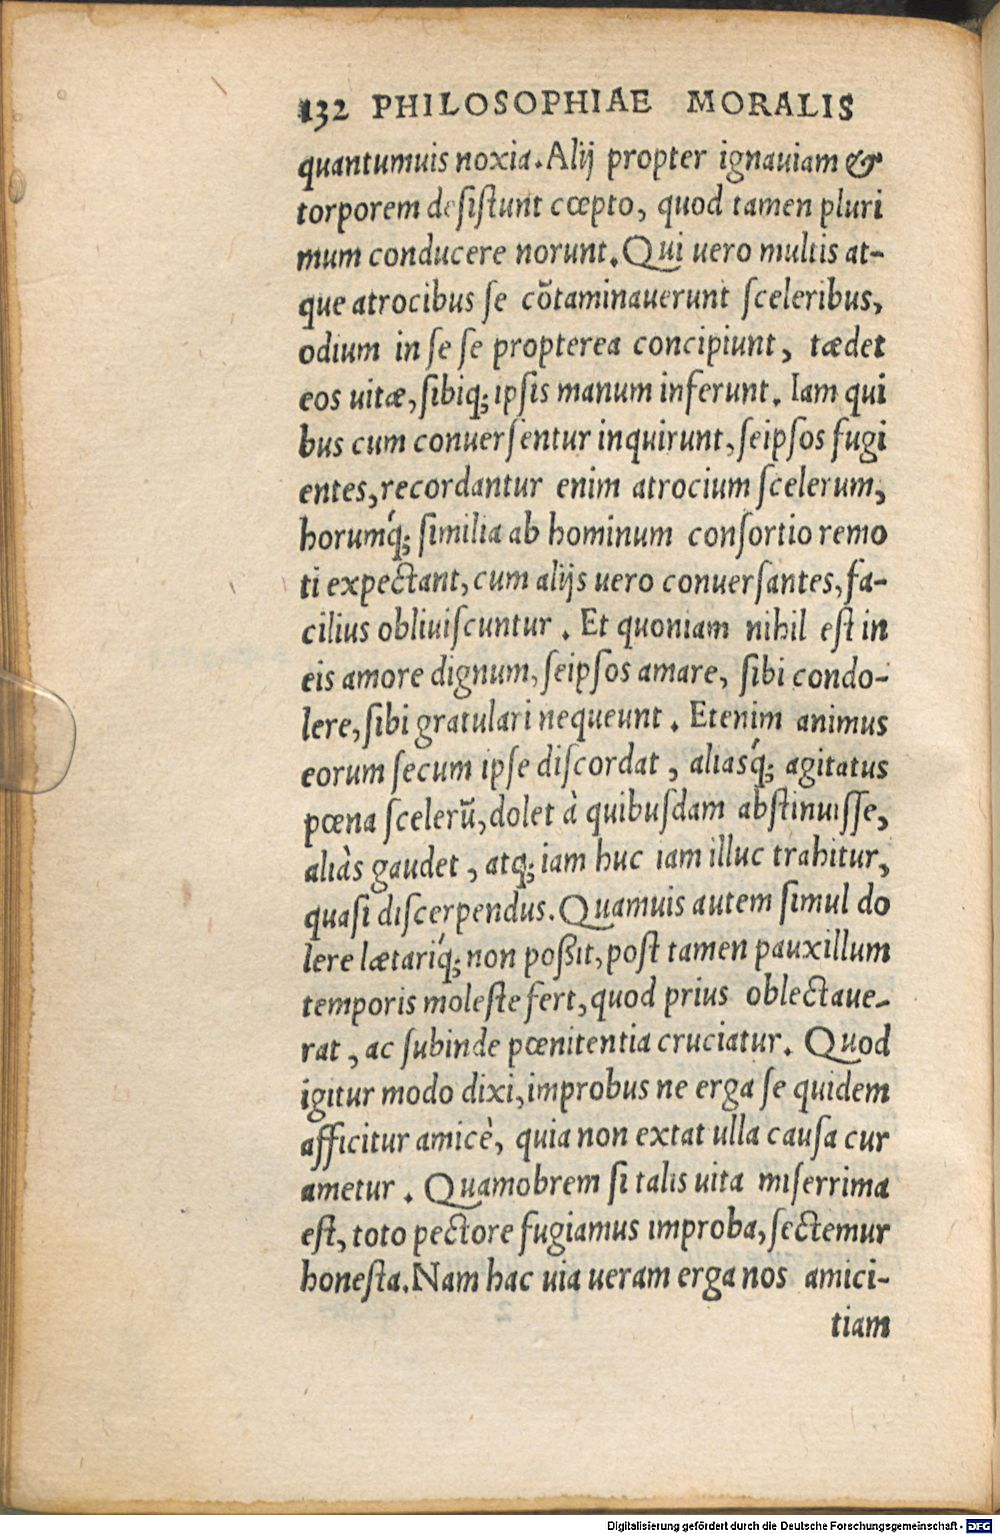 132 PHILOSOPHIAE MORALIS
quantumuis noxia. Alij propter ignauiam &
torporem desiſtunt cœpto, quod tamen pluri
mum conducere norunt. Qui uero multis at-
que atrocibus ſe cõtaminauerunt ſceleribus,
odium in ſe ſe propterea concipiunt, tædet
eos uitæ, ſibiq; ipſis manum inferunt. Iam qui
bus cum conuerſentur inquirunt, ſeipſos fugi
entes, recordantur enim atrocium ſcelerum,
horumq́; ſimilia ab hominum conſortio remo
ti expectant, cum alijs uero conuerſantes, fa-
cilius obliuiſcuntur. Et quoniam nihil eſt in
eis amore dignum, ſeipſos amare, ſibi condo-
lere, ſibi gratulari nequeunt. Etenim animus
eorum ſecum ipſe diſcordat, aliasq́; agitatus
pœna ſcelerũ, dolet à quibuſdam abſtinuiſſe,
aliàs gaudet, atq; iam huc iam illuc trahitur,
quaſi diſcerpendus. Quamuis autem ſimul do
lere lætariq́; non poßit, poſt tamen pauxillum
temporis moleſte fert, quod prius oblectaue-
rat, ac ſubinde pœnitentia cruciatur. Quod
igitur modo dixi, improbus ne erga ſe quidem
afficitur amicè, quia non extat ulla cauſa cur
ametur. Quamobrem ſi talis uita miſerrima
eſt, toto pectore fugiamus improba, ſectemur
honeſta. Nam hac uia ueram erga nos amici-
tiam
Digitalisierung gefördert durch die Deutsche Forschungsgemeinschaft - DFG